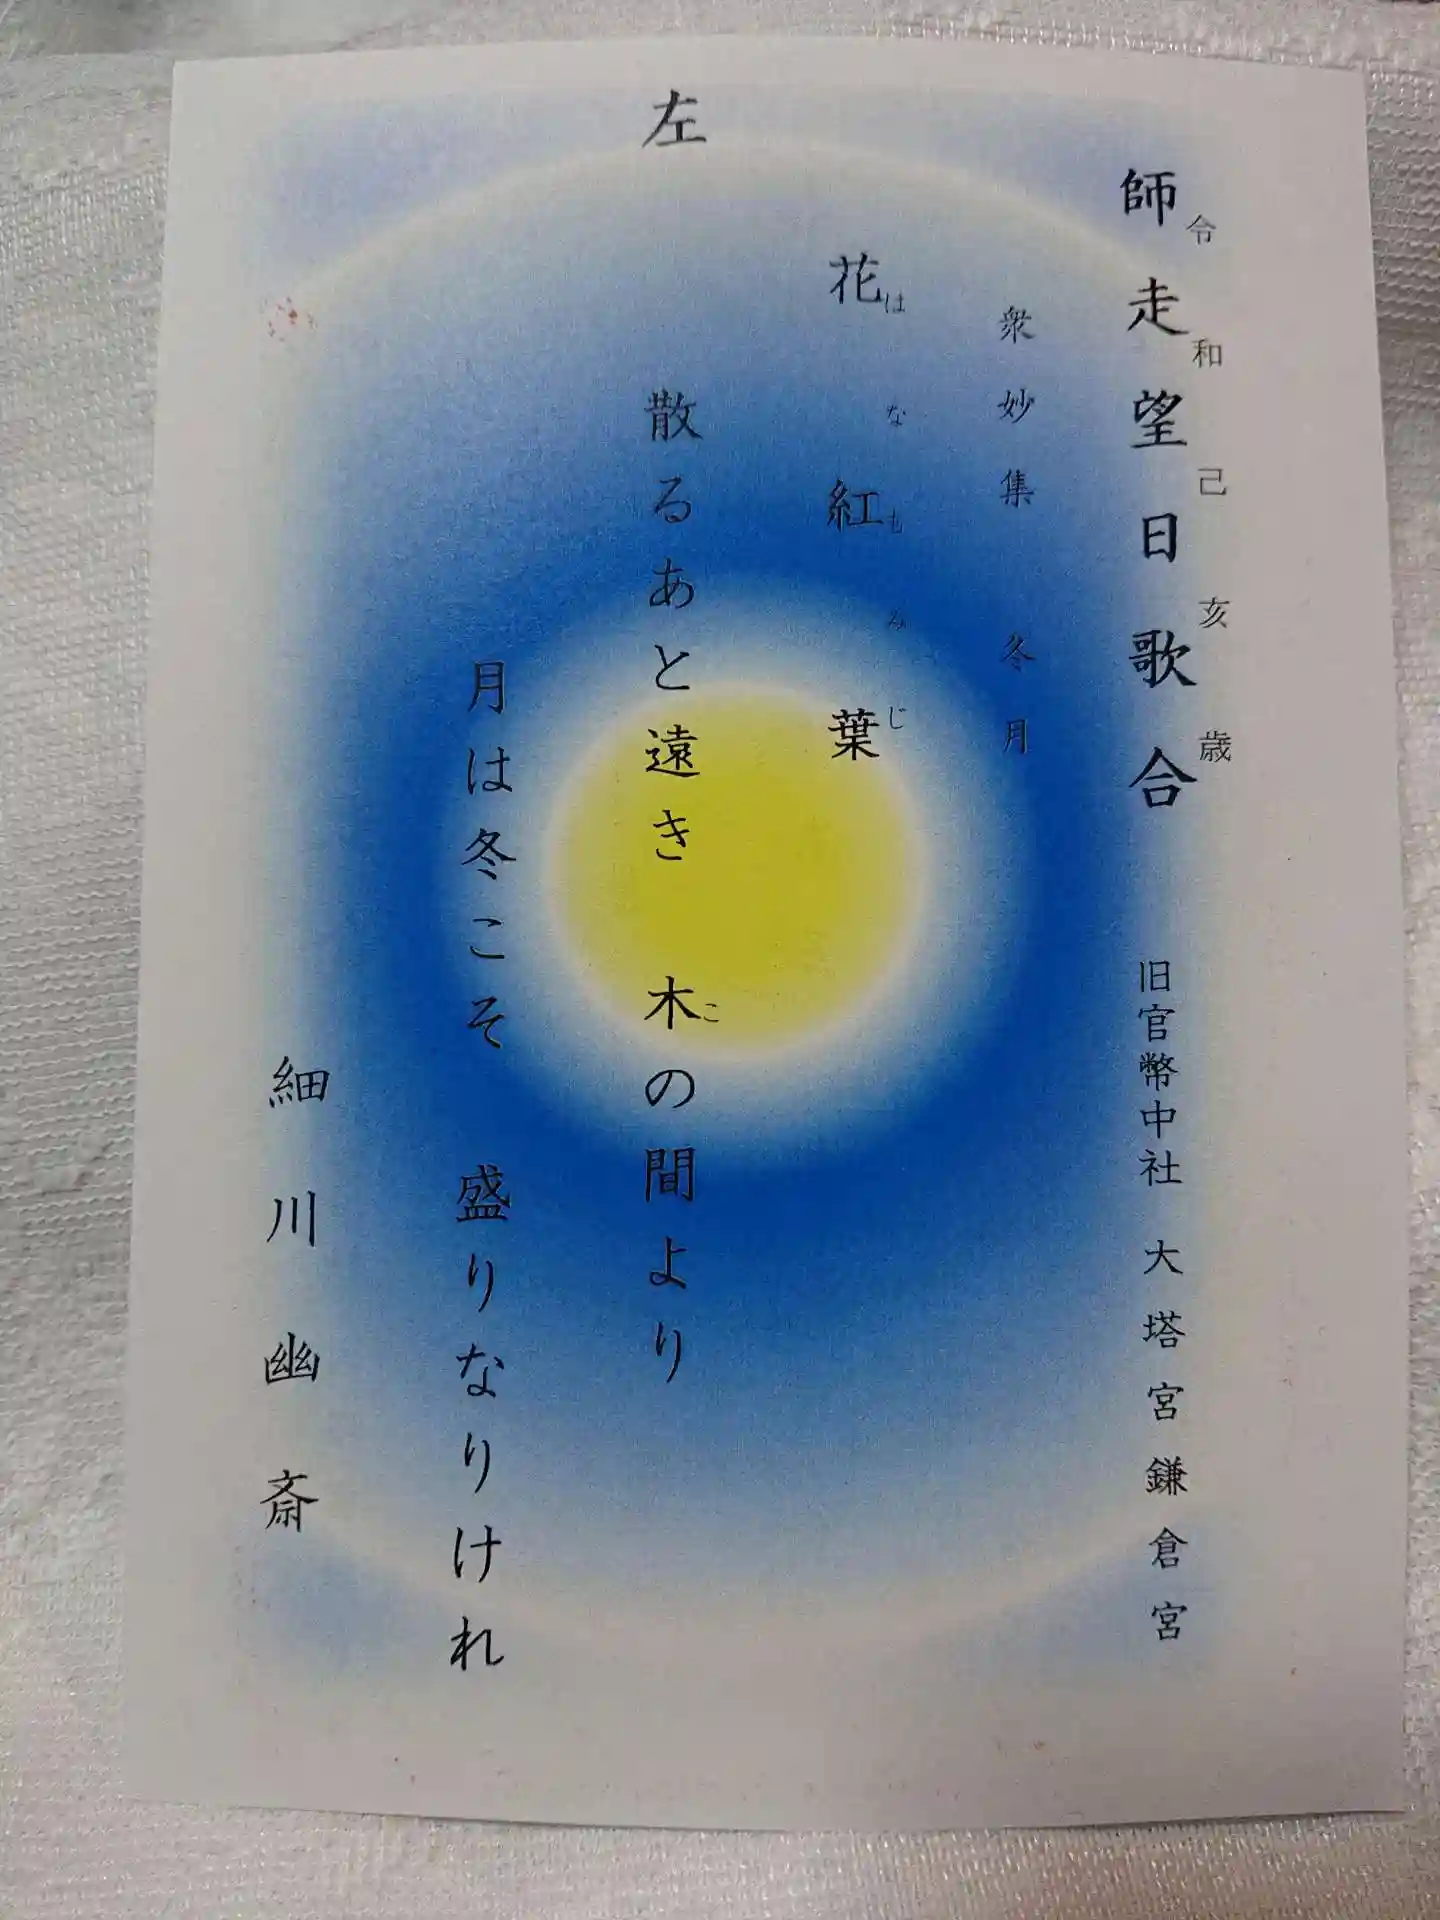 令和己亥歳
師走望日歌合 旧官幣中社 大塔宮鎌倉宮
衆妙集 冬月
はなもみじ
花紅葉
左 散るあと遠き 木の間より
こ
月は冬こそ 盛りなりけれ
細川幽斎